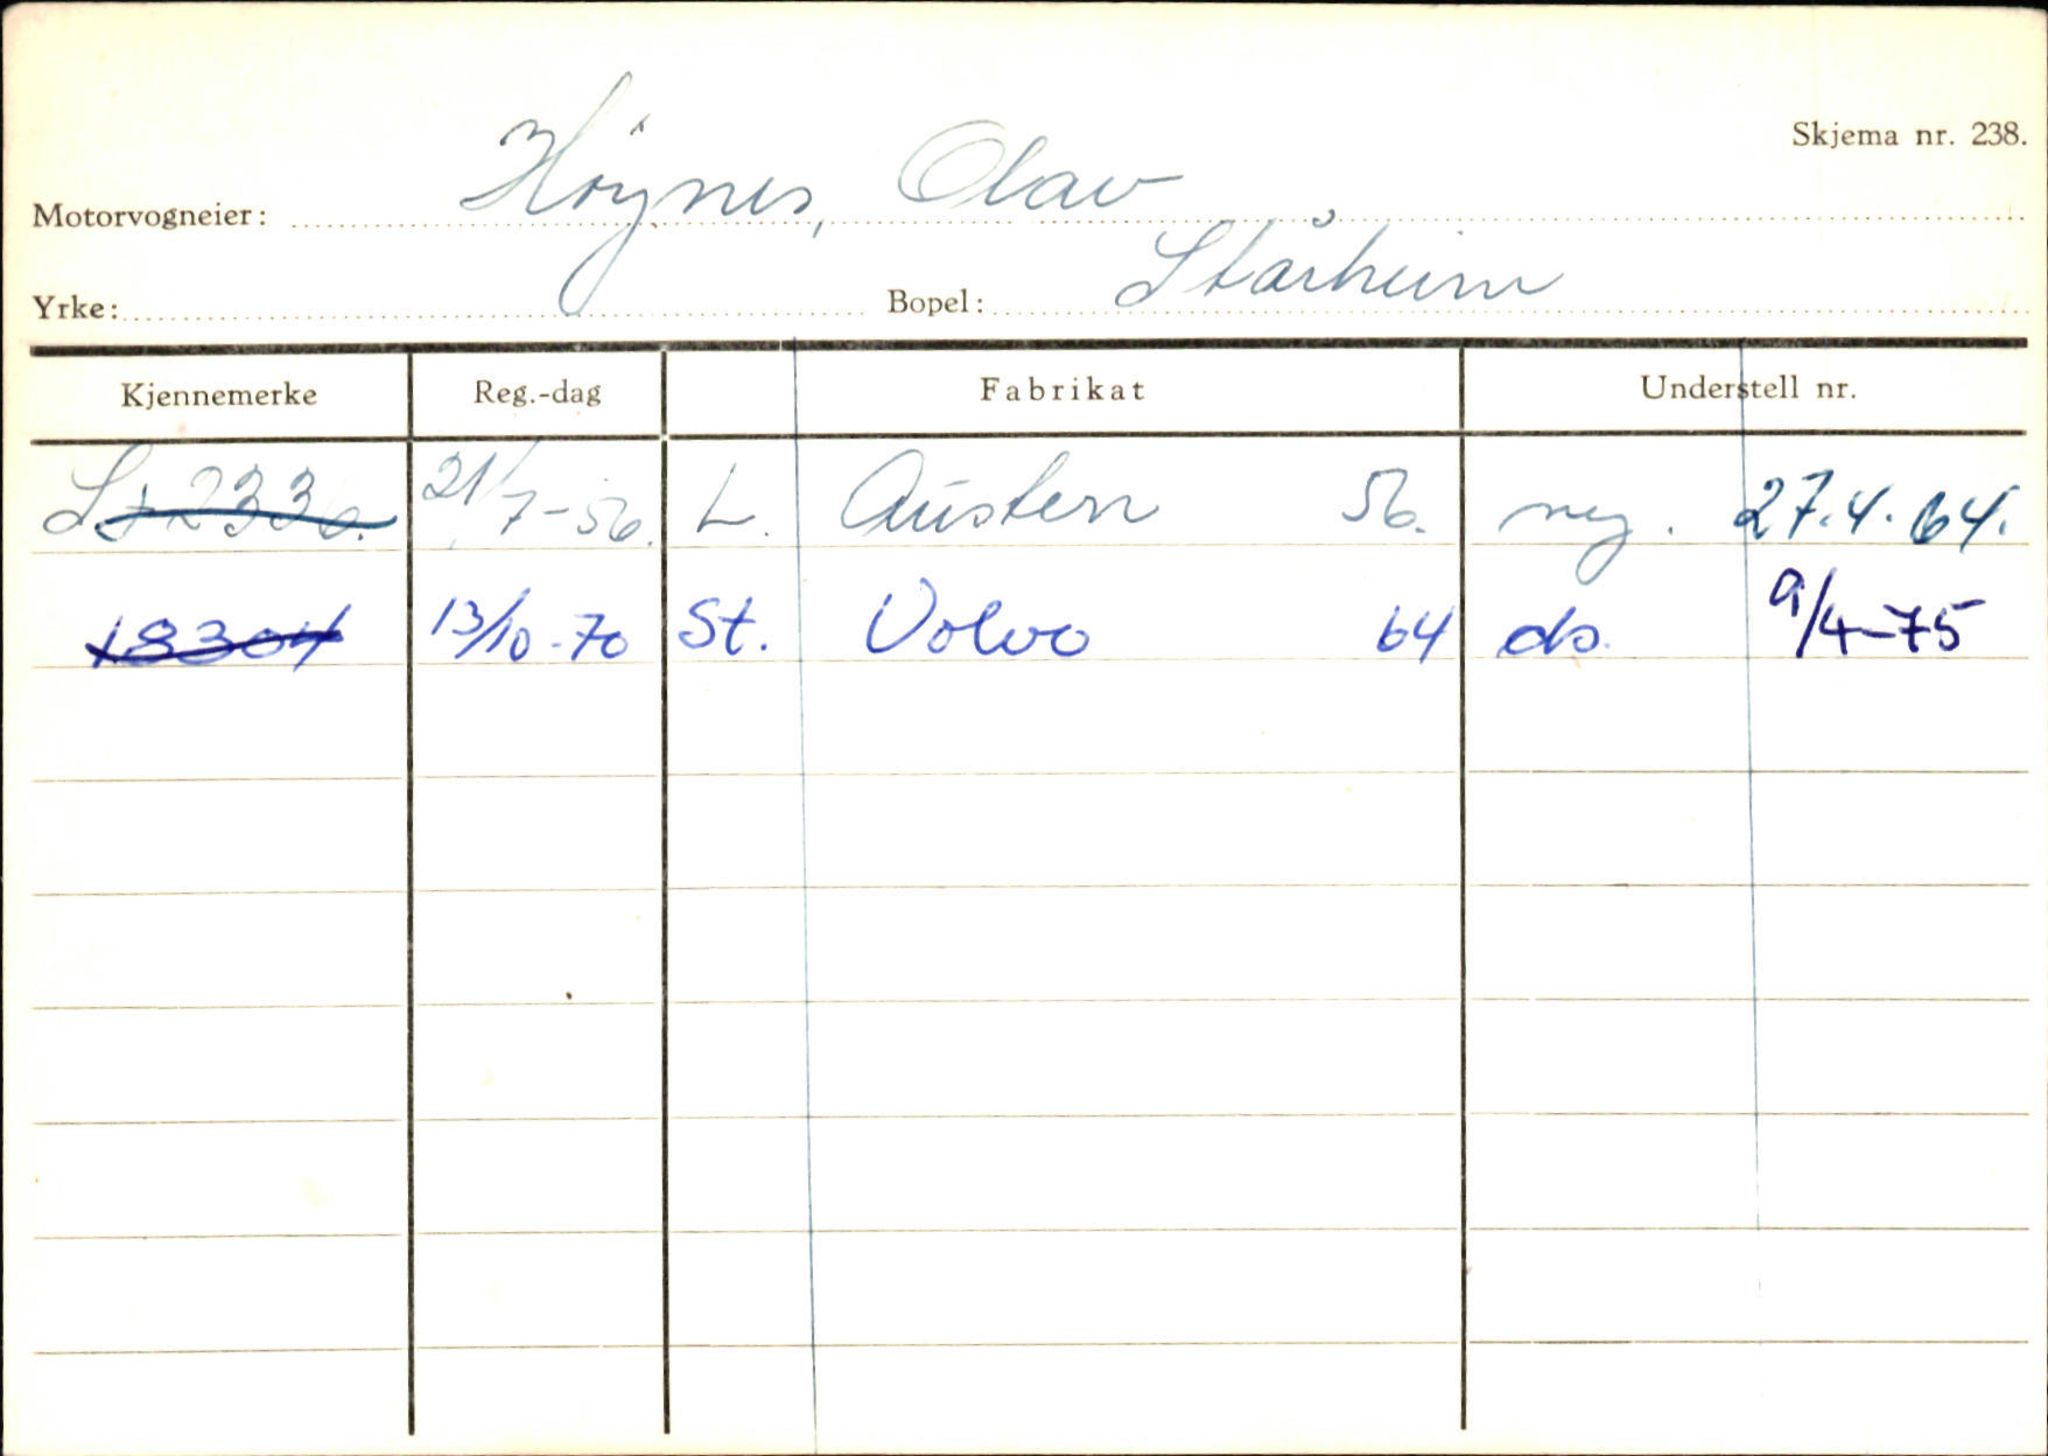 Skjema nr. 238.
Motorvogneier: Höynes, Olav
Yrke: Bopel: Stårheim
Kjennemerke Reg.-dag Fabrikat Understell nr.
21/7-56. L. Austen 56. reg. 27.4.64.
18304 13/10-70 St. Volvo 64 do. 9/4-75